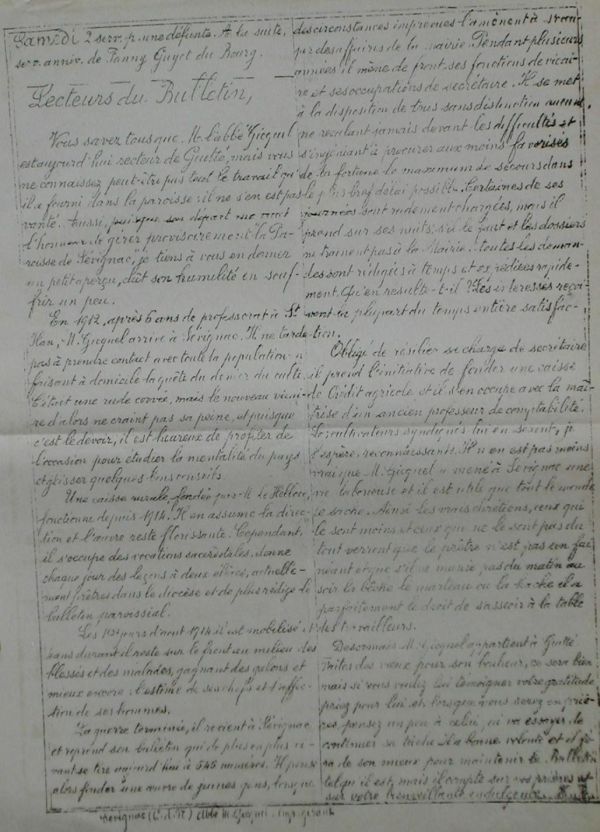 Samedi 2 serv. p. une défunte. A la suite,
serv. anniv. de Fanny Guyot du Bourg.
Lecteurs du Bulletin,
Vous savez tous que M. l'abbé Gicquel
est aujourd'hui recteur de Guitté, mais vous
ne connaissez peut-être pas tout le travail qu'
il a fourni dans la paroisse: il ne s'en est pas
vanté. Aussi, puisque son départ me vaut
l'honneur de gérer provisoirement la Pa-
roisse de Sévignac, je tiens à vous en donner
un petit aperçu, dût son humilité en souf-
frir un peu.
En 1912, après 6 ans de professorat à St
Ilan, M. Gicquel arrive à Sévignac. Il ne tarde
pas à prendre contact avec toute la population
faisant à domicile la quête du denier du culte.
C'était une rude corvée, mais le nouveau vicai-
re d'alors ne craint pas sa peine, et puisque
c'est le devoir, il est heureux de profiter de
l'occasion pour étudier la mentalité du pays
et glisser quelques bons conseils.
Une caisse rurale, fondée par M. Le
fonctionne depuis 1914. Il en assume la direc-
tion et l'œuvre reste florissante. Cependant,
il s'occupe des vocations sacerdotales, donne
chaque jour des leçons à deux élèves, actuelle-
ment prêtres dans le diocèse et de plus rédige le
bulletin paroissial.
Les 1ers jours d'août 1914 il est mobilisé et
ans durant il reste sur le front au milieu des
blessés et des malades, gagnant des galons et
mieux encore l'estime de ses chefs et l'affec-
tion de ses hommes.
La guerre terminée, il revient à Sévignac
et reprend son bulletin qui de plus en plus vi-
vant se tire aujourd'hui à 545 numéros. Il pense
alors fonder une œuvre de jeunes gens, lorsque
des circonstances imprévues l'amènent à s'occu-
per des affaires de la mairie. Pendant plusieurs
années il mène de front ses fonctions de vicai-
re et ses occupations de secrétaire. Il se met
à la disposition de tous sans distinction aucune
ne reculant jamais devant les difficultés et
s'ingéniant à procurer aux moins favorisés
de la fortune le maximum de secours dans
le plus bref délai possible. Certaines de ses
journées sont rudement chargées, mais il
prend sur ses nuits, s'il le faut et les dossiers
ne traînent pas à la Mairie: toutes les deman-
des sont rédigées à temps et expédiées rapide-
ment. Qu'en résulte-t-il? Les intéressés reçoi-
vent la plupart du temps entière satisfac-
tion.
Obligé de résilier sa charge de secrétaire
il prend l'initiative de fonder une caisse
de Crédit agricole et il s'en occupe avec la maî-
trise d'un ancien professeur de comptabilité.
Les cultivateurs syndiqués lui en seront, je
l'espère, reconnaissants. Il n'en est pas moins
vrai que M. Gicquel a mené à Sévignac une
vie laborieuse et il est utile que tout le monde
le sache. Ainsi les vrais chrétiens, ceux qui
le sont moins et ceux qui ne le sont pas du
tout verront que le prêtre n'est pas un fai-
néant et que s'il ne manie pas du matin au
soir la bêche le marteau ou la hache il a
parfaitement le droit de s'asseoir à la table
des travailleurs.
Désormais M. Gicquel appartient à Guitté
Faites des vœux pour son bonheur, ce sera bien
mais si vous voulez lui témoigner votre gratitude
priez pour lui et lorsque vous serez en priè-
res pensez un peu à celui qui va essayer de
continuer sa tâche. Il a bonne volonté et il fe-
ra de son mieux pour maintenir le Bulletin
tel qu'il est, mais il compte sur vos prières et
sur votre bienveillante indulgence.
Sévignac (C. d. N.) Abbé M. Gicquel, imp. gérant